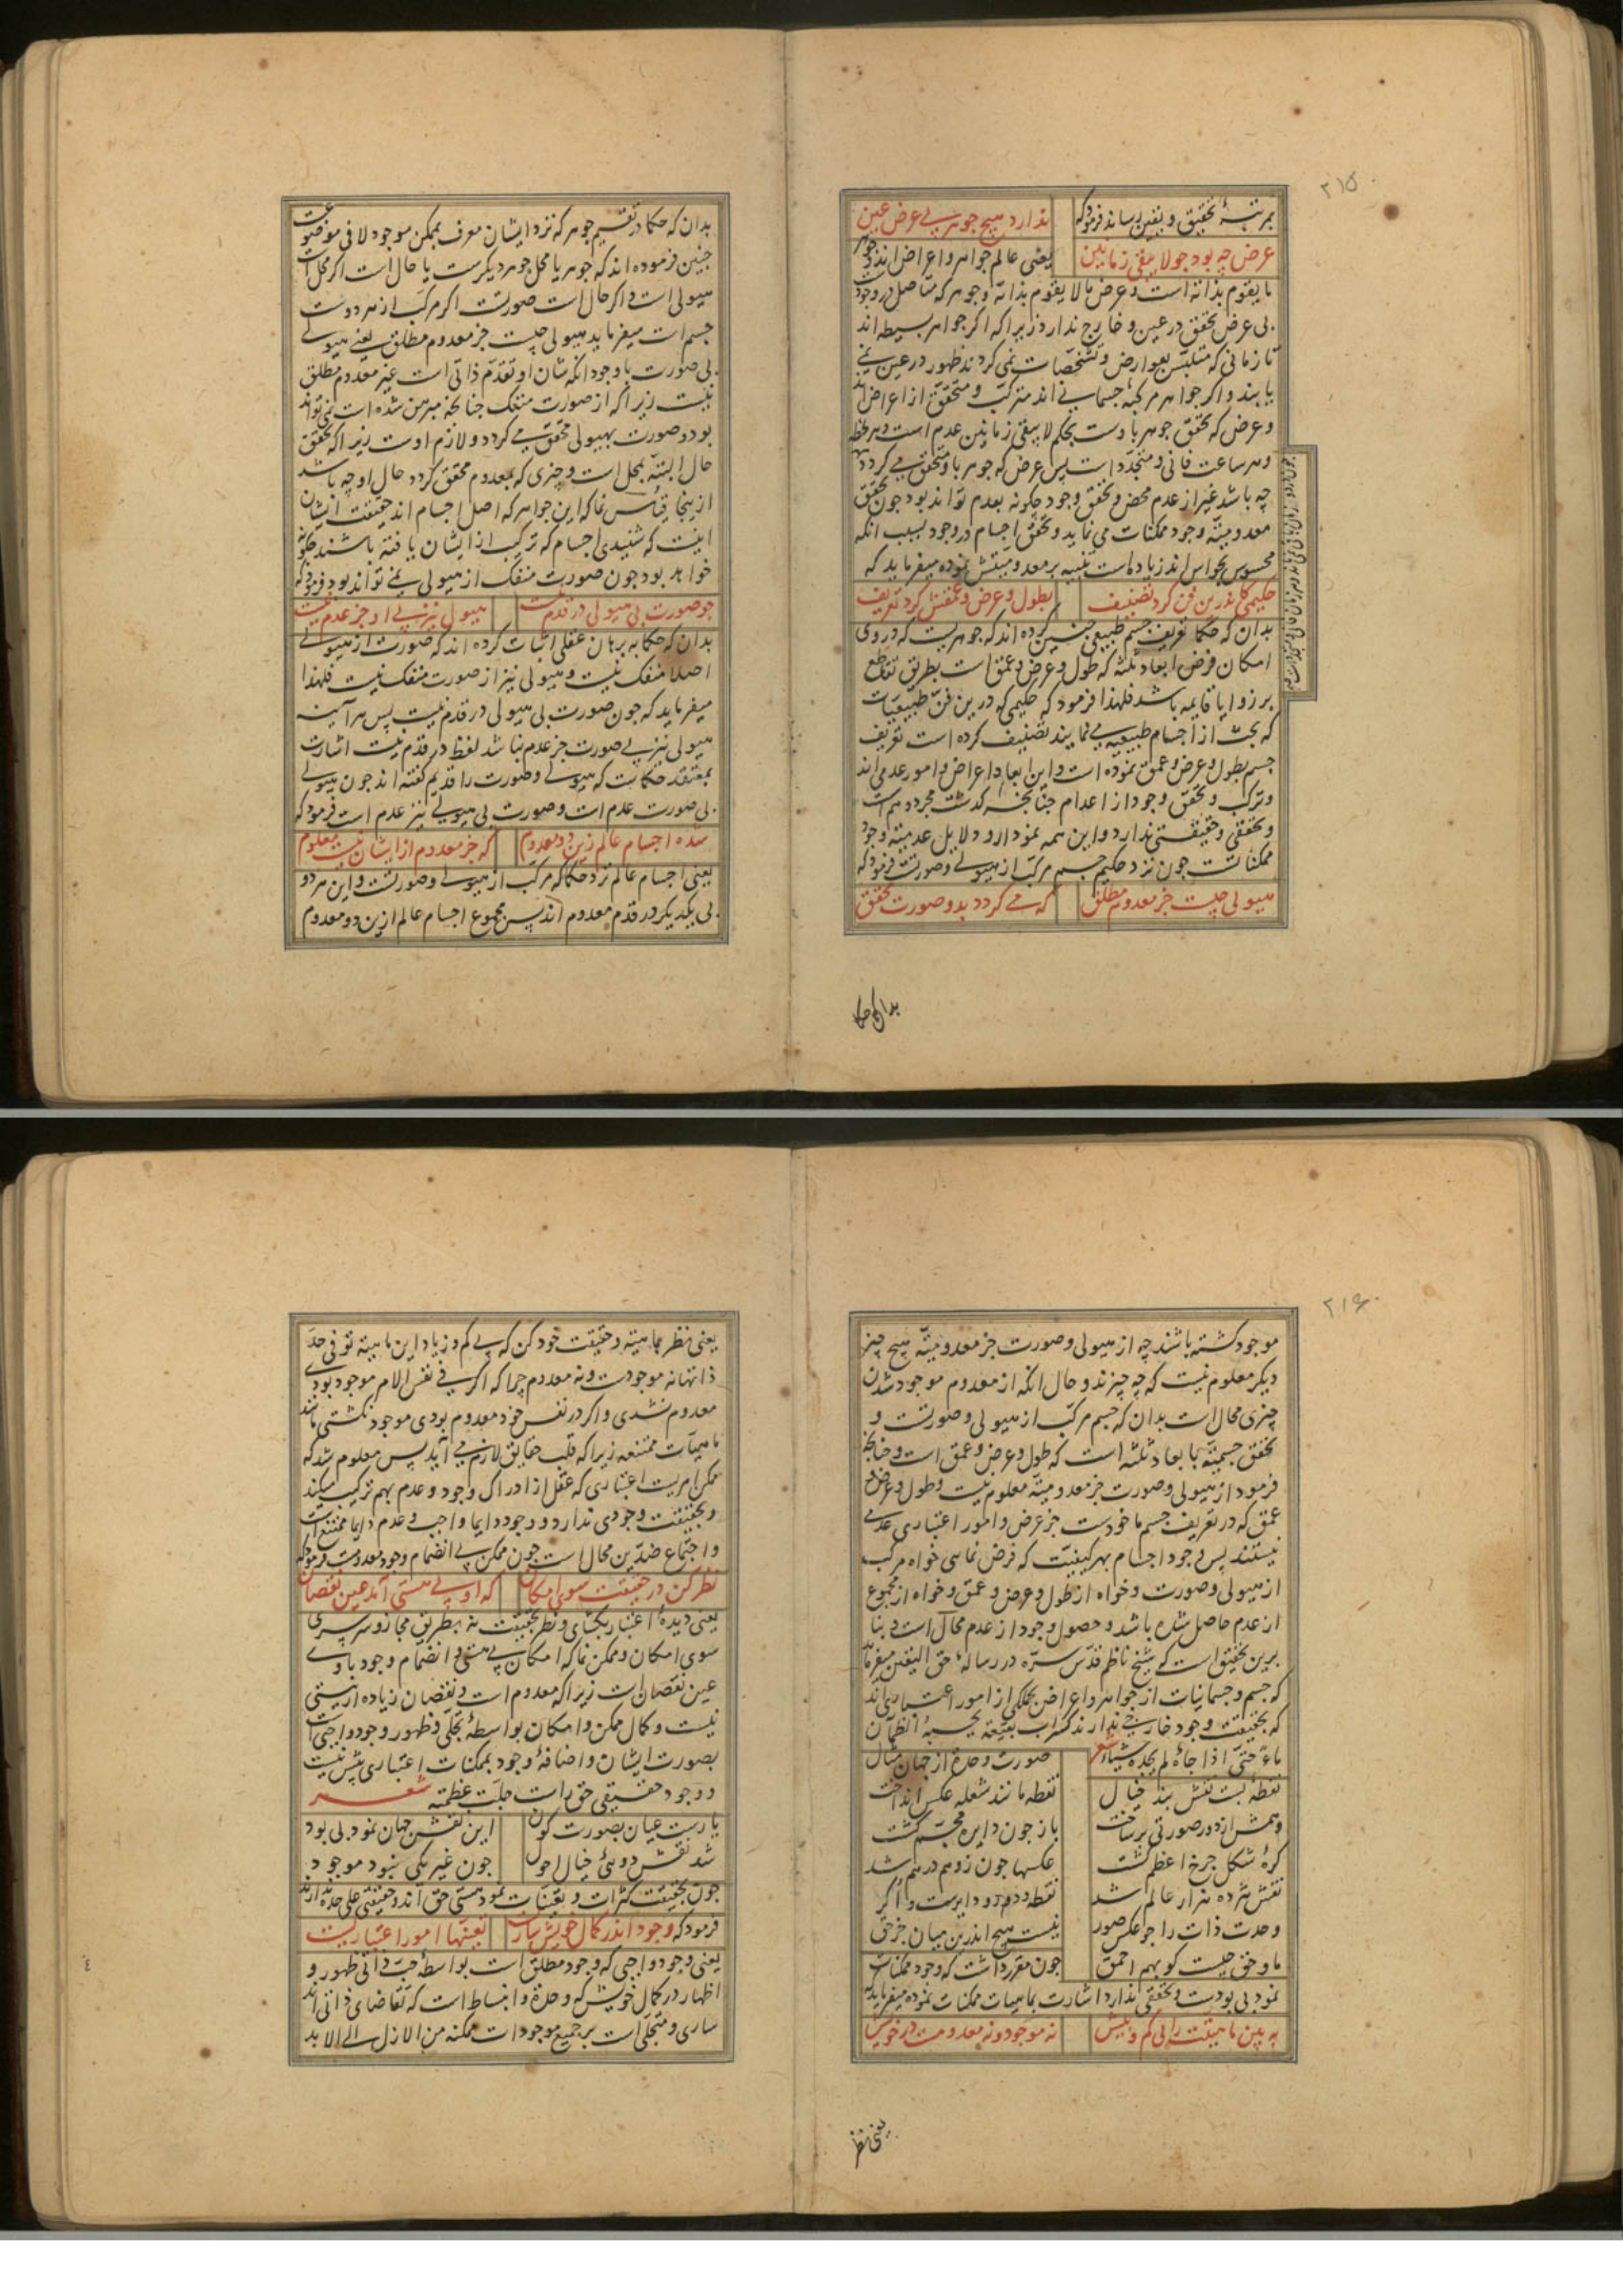 ۲۱۵
بمرتبهٔ تحقیق و یقین رساند فرمود که ندارد هیچ جوهر بی عرض عین
عرض چه بود جو لا یبقی زمانین یعنی عالم جواهر و اعراض اند و جوهر
ما یقوم بذاته است و عرض ما لا یقوم بذاته و جوهر که متاصل در وجود است
بی عرض تحقق در عین و خارج ندارد زیرا که اکر جواهر بسیطه اند
تا زمانی که متلبس بعوارض و تشخصات نمی کردند ظهور در عین نمی
یابند و اکر جواهر مرکبهٔ جسمانی اند مترکب و متحقق از اعراض اند
و عرض که تحقق جوهر باوست بحکم لا یبقی زمانین عدم است و هر لحظه
و هر ساعت فانی و متجدد است پس عرض که جوهر باو متحقق می کردد
چه باشد غیر از عدم محض و تحقق وجود چکونه بعدم تواند بود جون تحقق
معدومیة وجود ممکنات می نماید و تحقق اجسام در وجود بسبب انکه
محسوس بحواس اند زیاده است تنبیه بر معدومیتش نموده میفرماید که
حکیمی کاندرین فن کرد تصنیف بطول و عرض و عمقش کرد تعریف
بدان که حکما تعریف جسم طبیعی جنین کرده اند که جوهریست که در وی
امکان فرض ابعاد ثلثه که طول و عرض و عمق است بطریق تقاطع
بر زوایا قایمه باشد فلهذا فرمود که حکیمی که درین فن طبیعیات
که بحث از اجسام طبیعیه می نمایند تصنیف کرده است تعریف
جسم بطول و عرض و عمق نموده است و این ابعاد اعراض و امور عدمی اند
و ترکب و تحقق وجود از اعدام جنانجه کذشت مجرد وهم است
و تحققی و حقیقتی ندارد و این همه نمودار و دلایل عدمیة وجود
ممکناتست جون نزد حکیم جسم مرکب از هیولی و صورتست فرمود که
هیولی چیست جز معدوم مطلق که می کردد بدو صورت تحقق
بدان که حکما
بدان که حکما در تقسیم جوهر که نزد ایشان معرف بممکن موجود لا فی موضوعست
جنین فرموده اند که جوهر یا محل جوهر دیکرست یا حال است اکر محل است
هیولی است و اکر حال است صورتست اکر مرکب از هر دوست
جسم است میفرماید هیولی چیست جز معدوم مطلق یعنی هیولی
بی صورت با وجود انکه شان او تقدم ذاتی است غیر معدوم مطلق
نیست زیرا که از صورت منفک جنانجه مبرهن شده است نمی تواند
بود و صورت بهیولی محقق می کردد و لازم اوست زیرا که تحقق
حال البته بمحل است و چیزی که بمعدوم محقق کردد حال او چه باشد
ازینجا قیاس نما که این جواهر که اصل اجسام اند حقیقت ایشان
اینست که شنیدی اجسام که ترکب از ایشان یافته باشند چکونه
خواهد بود جون صورت منفک از هیولی نمی تواند بود فرمود که
جو صورت بی هیولی در قدم نیست هیولی نیز بی او جز عدم نیست
بدان که حکما به برهان عقلی اثبات کرده اند که صورت از هیولی
اصلا منفک نیست و هیولی نیز از صورت منفک نیست فلهذا
میفرماید که جون صورت بی هیولی در قدم نیست پس هر آینه
هیولی نیز بی صورت جز عدم نباشد لفظ در قدم نیست اشارت
بمعتقد حکماست که هیولی و صورت را قدیم کفته اند جون هیولی
بی صورت عدم است و صورت بی هیولی نیز عدم است فرمود که
شده اجسام عالم زین دو معدوم که جز معدوم از ایشان نیست معلوم
یعنی اجسام عالم نزد حکما که مرکب از هیولی و صورتست و این هر دو
بی یکدیکر در قدم معدوم اند پس مجموع اجسام عالم ازین دو معدوم
۲۱۶
موجود کشته باشند چه از هیولی و صورت جز معدومیة هیچ چیز
دیکر معلوم نیست که چه چیزند و حال انکه از معدوم موجود شدن
چیزی محال است بدان که جسم مرکب از هیولی و صورتست و
تحقق جسمیة با بعاد ثلثه است که طول و عرض و عمق است و جنانجه
فرمود از هیولی و صورت جز معدومیة معلوم نیست و طول و عرض و
عمق که در تعریف جسم ماخوذست جز عرض و امور اعتباری عدمی
نیستند پس وجود اجسام بهر کیفیت که فرض نمایی خواه مرکب
از هیولی و صورت و خواه از طول و عرض و عمق و خواه از مجموع
از عدم حاصل شده باشد و حصول وجود از عدم محال است و بنا
برین تحقیق است که شیخ ناظم قدس سره در رسالهٔ حق الیقین میفرماید
که جسم و جسمانیات از جواهر و اعراض بکلی از امور اعتباری اند
که بحقیقت وجود خارجی ندارند کسراب بقیعة یحسبه الظمآن
ماءً حتی اذا جاءه لم یجده شیئا شعر صورت وحدة از جهان مثال
نقطهٔ بست نقش بند خیال نقطه مانند شعله عکس انداخت
وهمش از دور صورتی بر ساخت باز جون دایره مجسم کشت
کرهٔ شکل جرخ اعظم کشت عکسها جون زوهم درهم شد
نقش هژده هزار عالم شد نقطه و دور دایرست و اکر
وحدت ذات را جو عکس صور نیست هیچ اندرین میان جز حق
ما و حق چیست کو بهم احمق جون مقرر داشت که وجود ممکنات
نمود بی بودست و تحققی ندارد اشارت بماهیات ممکنات نموده میفرماید که
به بین ماهیتت را بی کم و بیش نه موجود و نه معدومست در خویش
یعنی نظر
یعنی نظر بماهیة و حقیقت خود کن که بی کم و زیاد این ماهیة تو فی حد
ذاتها نه موجودست و نه معدوم چرا که اکر فی نفس الامر موجود بودی
معدوم نشدی و اکر در نفس خود معدوم بودی موجود نکشتی مانند
ماهیآت ممتنعه زیرا که قلب حقایق لازم می آید پس معلوم شد که
ممکن امریست اعتباری که عقل از ادراک وجود و عدم بهم ترکیب میکند
و بحقیقت وجودی ندارد و وجود دایما واجب و عدم دایما ممتنع است
و اجتماع ضدین محال است جون ممکن بی انضمام وجود معدومست فرمود که
نظر کن در حقیقت سوی امکان که او بی هستی آمد عین نقصان
یعنی دیدهٔ اعتبار بکشای و نظر بحقیقت نه بطریق مجاز و سرسری
سوی امکان و ممکن نما که امکان بی هستی و انضمام وجود با وی
عین نقصان است زیرا که معدوم است و نقصان زیاده از نیستی
نیست و کمال ممکن و امکان بواسطهٔ تجلی و ظهور وجود واجبی است
بصورت ایشان و اضافهٔ وجود بممکنات اعتباری بیش نیست
و وجود حقیقی حق راست جلت عظمته شعر
یار بست عیان بصورت کون این نقش جهان نمود بی بود
شد نقش دوئی خیال احول جون غیر یکی نبود موجود
جون بحقیقت کثرات و تعینات نمود هستی حق اند و حقیقتی علی حده ندارند
فرمود که وجود اندر کمال خویش ساریست تعینها امور اعتباریست
یعنی وجود واجبی که وجود مطلق است بواسطهٔ حب ذاتی ظهور و
اظهار در کمال خویش که وحدة و انبساط است که تقاضای ذاتی اند
ساری و متجلی است بر جمیع موجودات ممکنه من الازل الی الابد